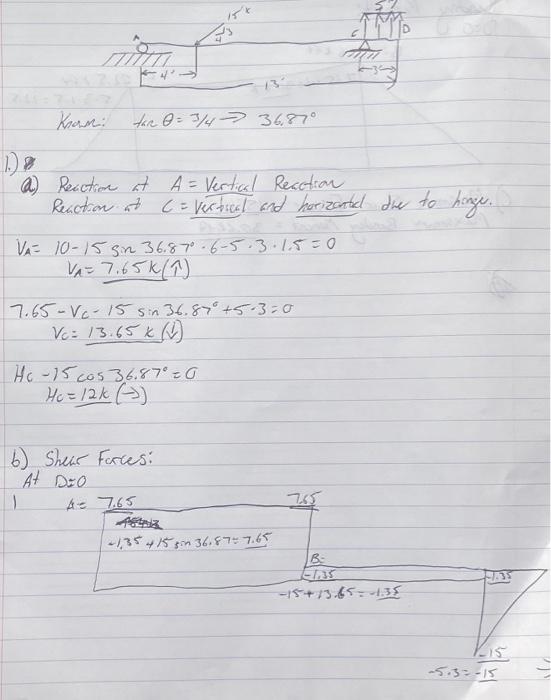 15ᵏ
3
4
A
C
D
4'
3'
13'
Known: tan θ = 3/4 → 36.87°
1.)
a) Reaction at A = Vertical Reaction
Reaction at C = Vertical and horizontal due to hinge.
VA= 10-15 sin 36.87° · 6-5 · 3 · 1.5 = 0
VA= 7.65 K (↑)
7.65 - Vc - 15 sin 36.87° + 5·3 = 0
Vc = 13.65 K (↓)
Hc - 15 cos 36.87° = 0
Hc = 12k (→)
b) Shear Forces:
At D=0
A= 7.65
7.65
-1.35 + 15 sin 36.87 = 7.65
B=
-1.35
-1.35
-15 + 13.65 = -1.35
-15
-5·3 = -15